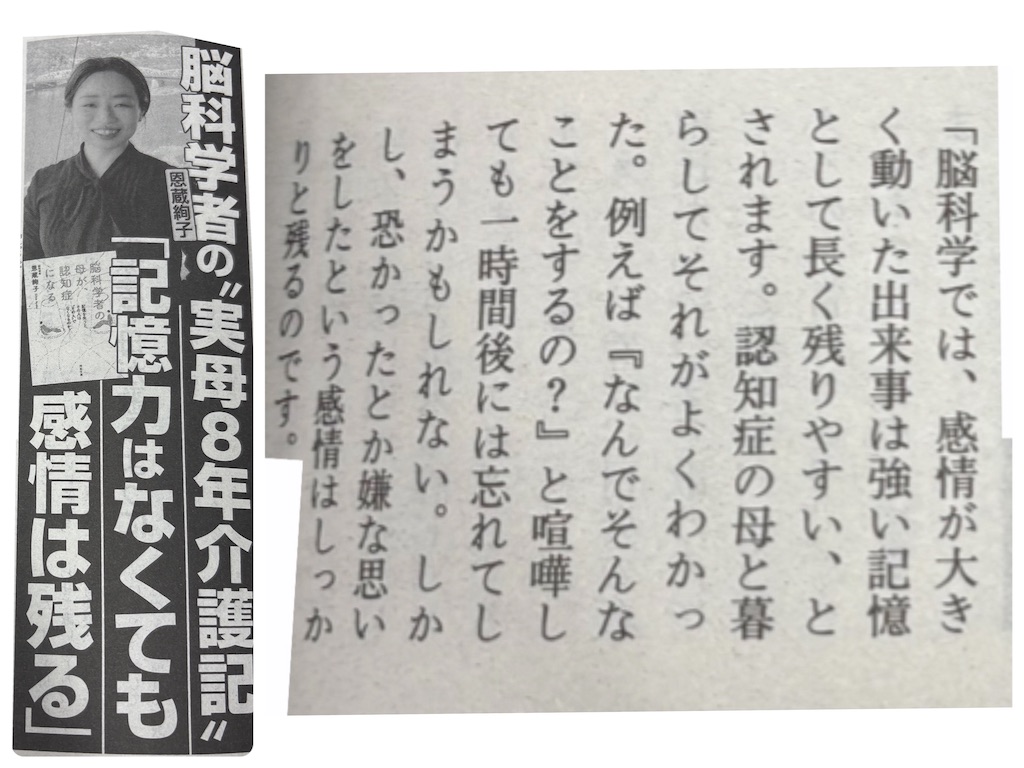 脳科学者の〝実母8年介護記〟
「記憶力はなくても
感情は残る」
恩蔵絢子
脳科学者の
母が、
認知症
になる
恩蔵絢子
「脳科学では、感情が大き
く動いた出来事は強い記憶
として長く残りやすい、と
されます。認知症の母と暮
らしてそれがよくわかっ
た。例えば『なんでそんな
ことをするの？』と喧嘩し
ても一時間後には忘れてし
まうかもしれない。しか
し、恐かったとか嫌な思い
をしたという感情はしっか
りと残るのです。